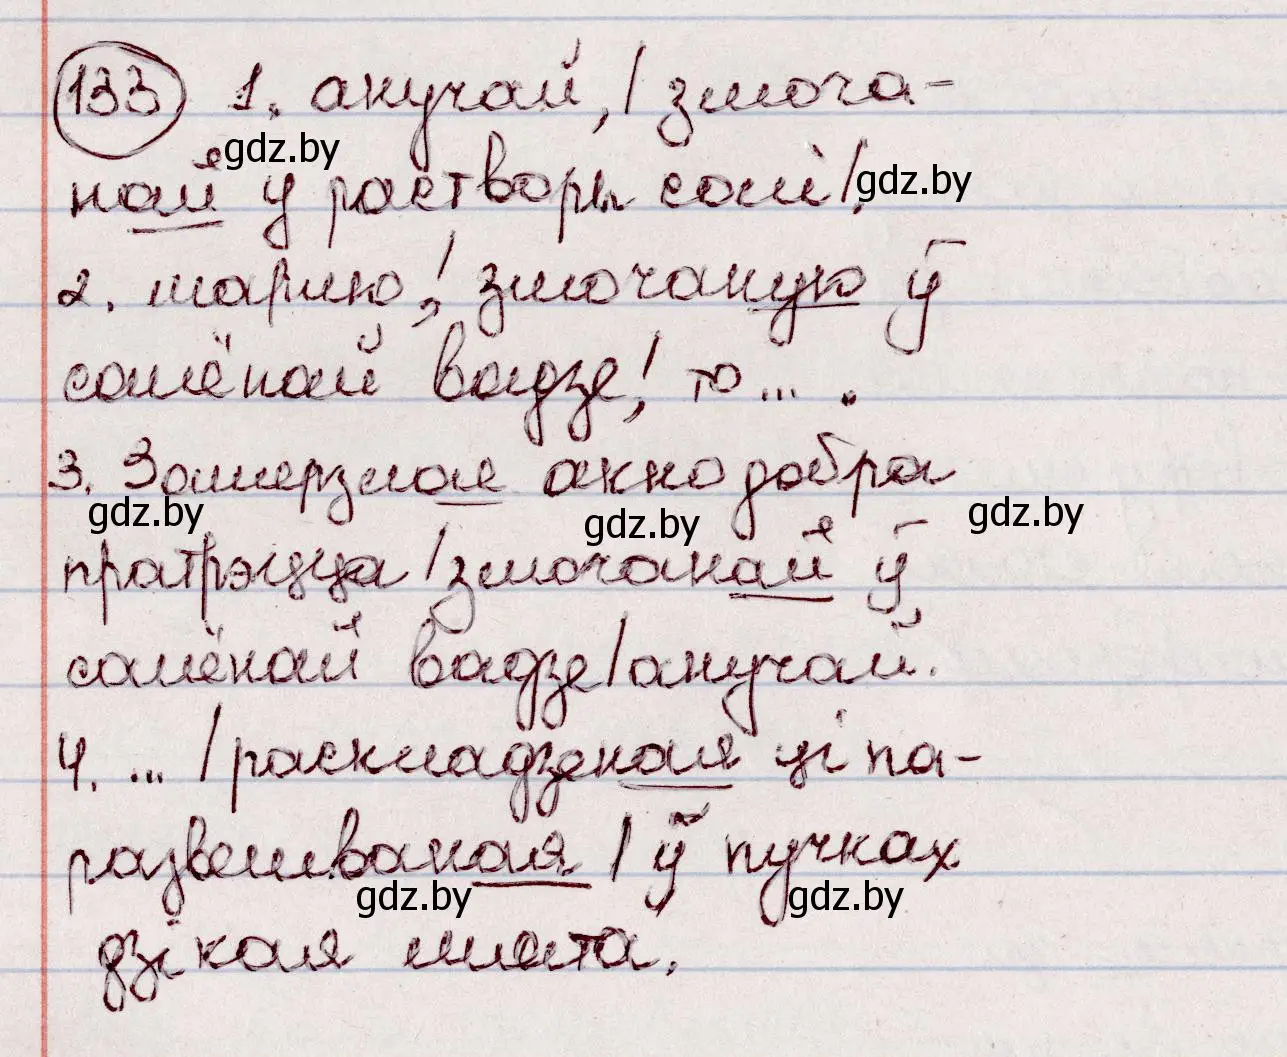 133 1. анучай, / змоча-
най у растворы солі /.
2. марлю, / змочаную ў
салёнай вадзе, / то ... .
3. Замерзлае акно добра
пратрэцца / змочанай ў
салёнай вадзе / анучай.
4. ... / раскладзеная ці па-
развешваная / ў пучках
дзікая мята.
gdz.by
gdz.by
gdz.by
gdz.by
gdz.by
gdz.by
gdz.by